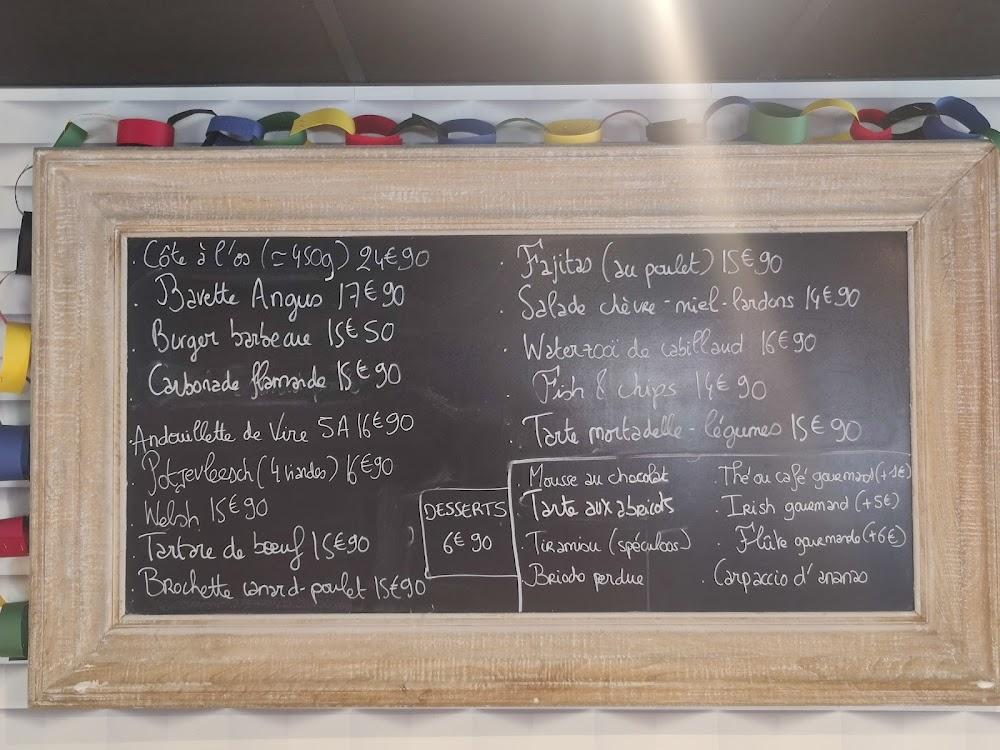 . Côte à l'os (≃450g) 24€90
. Bavette Angus 17€90
. Burger barbecue 15€50
. Carbonade flamande 15€90
. Andouillette de Vire 5A 16€90
. Potjevleesch (4 viandes) 16€90
. Welsh 15€90
. Tartare de bœuf 15€90
. Brochette canard-poulet 15€90
. Fajitas (au poulet) 15€90
. Salade chèvre-miel-lardons 14€90
. Waterzooï de cabillaud 16€90
. Fish & chips 14€90
. Tarte mortadelle-légumes 15€90
DESSERTS
6€90
. Mousse au chocolat
. Tarte aux abricots
. Tiramisu (spéculoos)
. Brioche perdue
. Thé ou café gourmand (+1€)
. Irish gourmand (+5€)
. Flûte gourmande (+6€)
. Carpaccio d'ananas